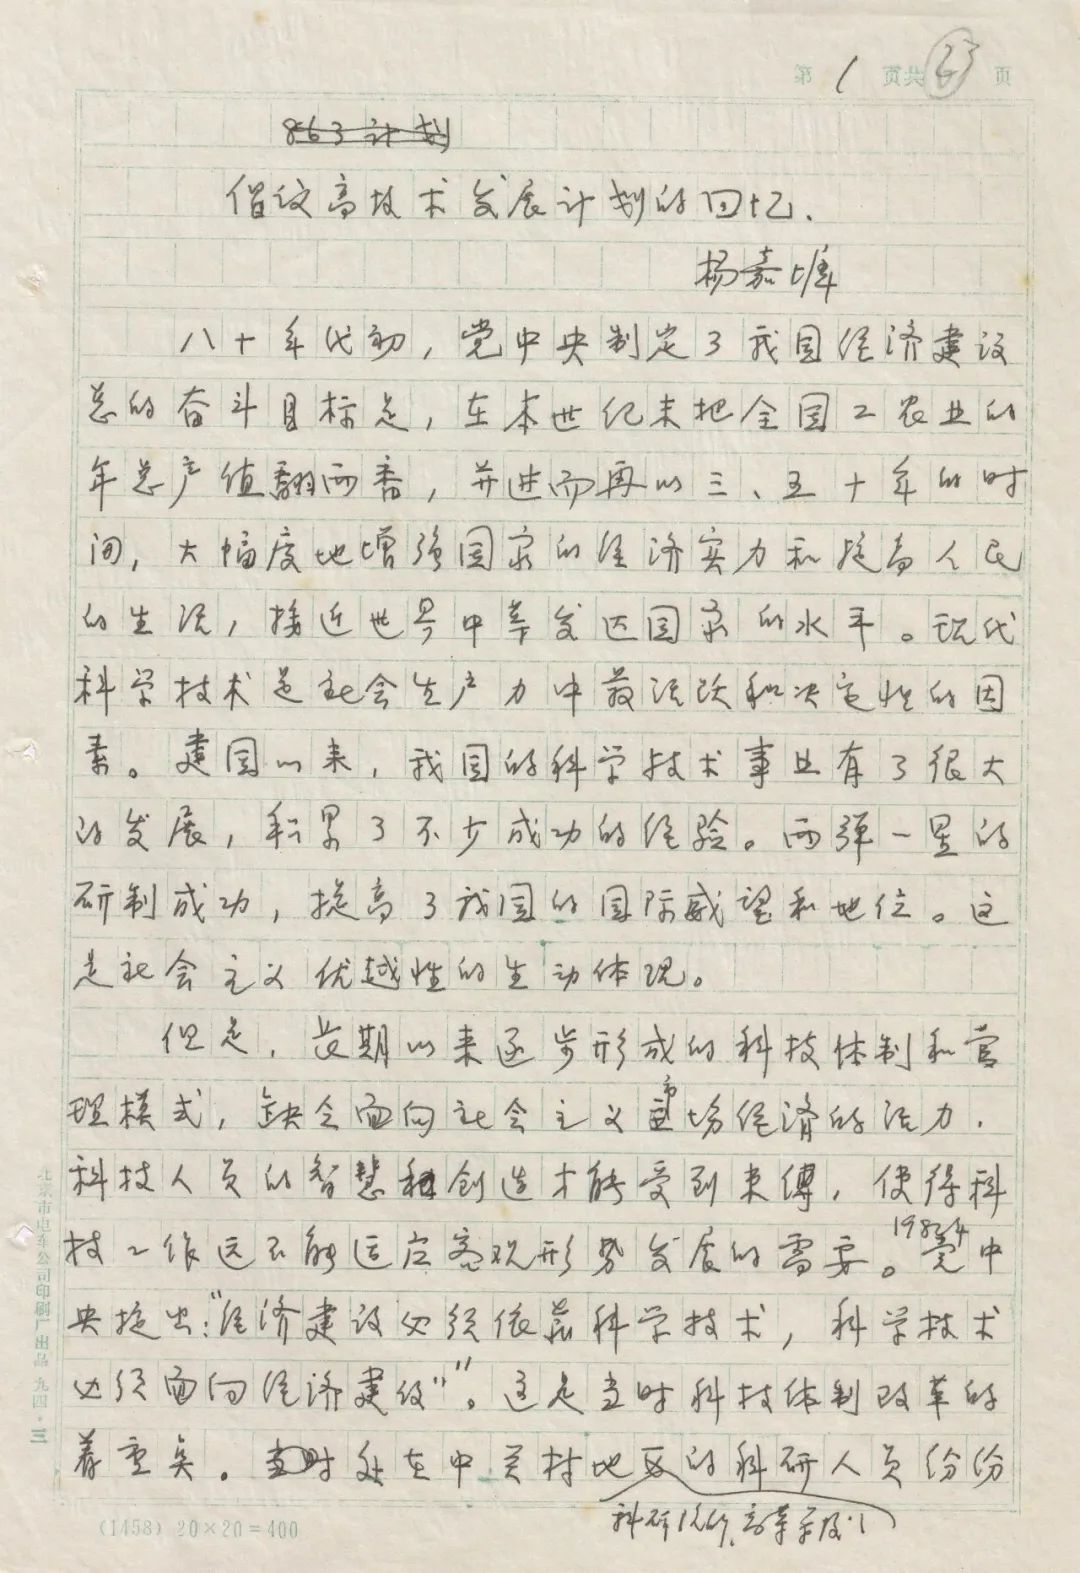 第 1 页共 23 页
863计划
倡议高技术发展计划的回忆.
杨嘉墀
八十年代初，党中央制定了我国经济建设
总的奋斗目标是，在本世纪末把全国工农业的
年总产值翻两番，并进而再以三、五十年的时
间，大幅度地增强国家的经济实力和提高人民
的生活，接近世界中等发达国家的水平。现代
科学技术是社会生产力中最活跃和决定性的因
素。建国以来，我国的科学技术事业有了很大
的发展，积累了不少成功的经验。两弹一星的
研制成功，提高了我国的国际威望和地位。这
是社会主义优越性的生动体现。
但是，长期以来逐步形成的科技体制和管
理模式，缺乏面向社会主义市场经济的活力.
科技人员的智慧和创造才能受到束缚，使得科
技工作远不能适应客观形势发展的需要。1982年党中
央提出："经济建设必须依靠科学技术，科学技术
必须面向经济建设"。这是当时科技体制改革的
着重点。当时处在中关村地区的科研人员纷纷
科研院所、高等学校
北京市电车公司印刷厂出品 九四·三
(1458) 20×20=400